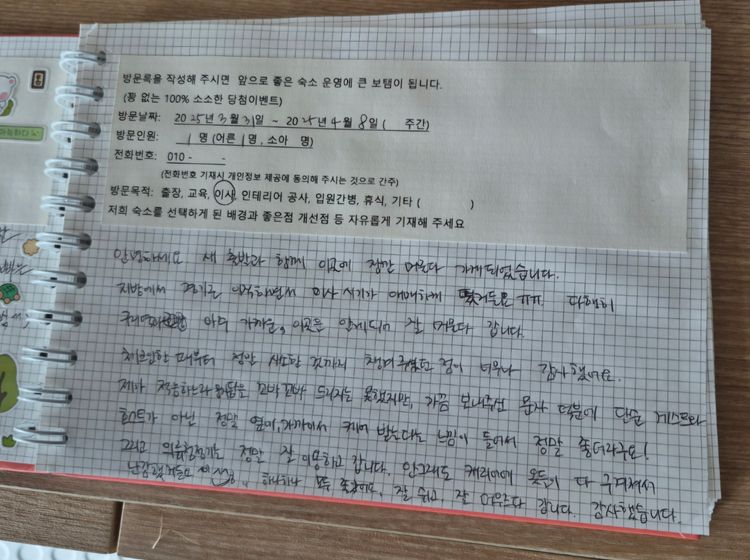 방문록을 작성해 주시면 앞으로 좋은 숙소 운영에 큰 보탬이 됩니다.
(꽝 없는 100% 소소한 당첨이벤트)
방문날짜: 2025년 3월 31일 ~ 2025년 4월 8일 ( 주간)
방문인원: 1 명 (어른 1 명, 소아 명)
전화번호: 010 - -
(전화번호 기재시 개인정보 제공에 동의해 주시는 것으로 간주)
방문목적: 출장, 교육, 이사, 인테리어 공사, 입원간병, 휴식, 기타 ( )
저희 숙소를 선택하게 된 배경과 좋은점 개선점 등 자유롭게 기재해 주세요
안녕하세요 새 출발과 함께 이곳에 잠깐 머물다 가게되었습니다.
지방에서 경기로 이직하면서 이사 시기가 애매하게 ㅠㅠ 다행히
아주 가까운, 이곳을 알게되어 잘 머물다 갑니다.
체크인할 때부터 정말 사소한 것까지 챙겨주셨던 점이 너무나 감사했어요.
제가 적응하느라 답을 꼬박꼬박 드리지는 못했지만, 가끔 보내주신 문자 덕분에 단순 게스트와
호스트가 아닌 정말 옆에,가까이서 케어 받는다는 느낌이 들어서 정말 좋더라구요!
그리고 의류관리기는 정말 잘 이용하고 갑니다. 안그래도 캐리어에 옷들이 다 구겨져서
난감했거든요 하나하나 모두 좋았어요. 잘 쉬고 잘 머무르다 갑니다. 감사했습니다.